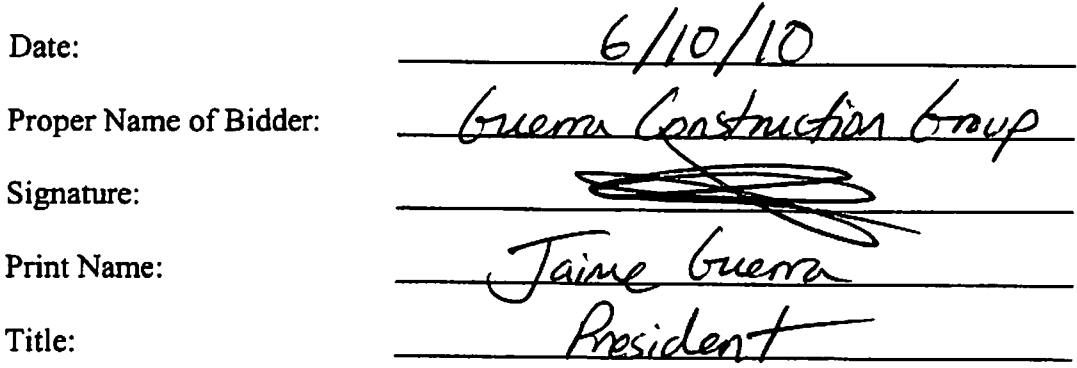 Date: 6/10/10
Proper Name of Bidder: Guerra Construction Group
Signature:
Print Name: Jaime Guerra
Title: President